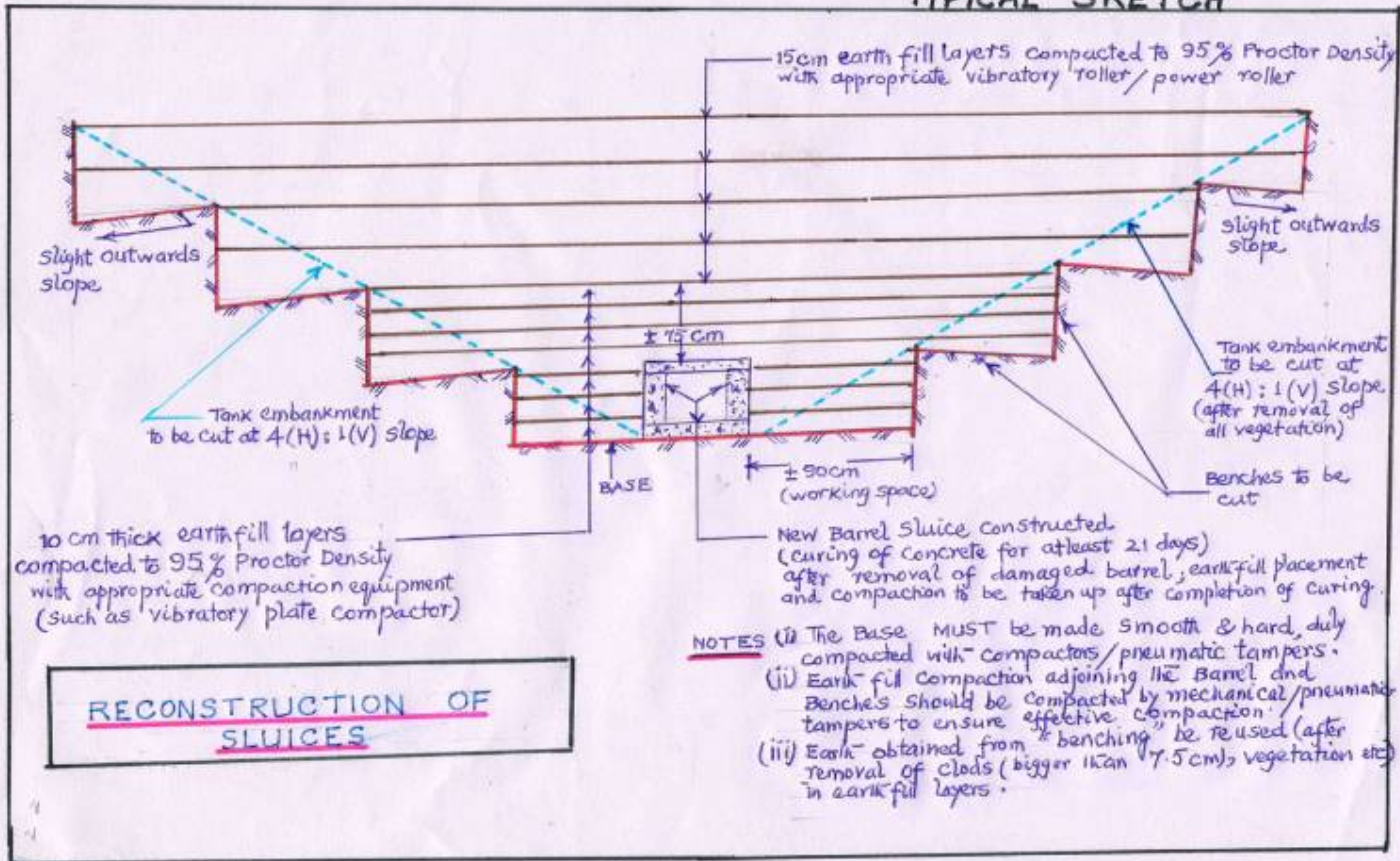 TYPICAL SKETCH
15cm earth fill layers compacted to 95% Proctor Density
with appropriate vibratory roller/power roller
slight outwards
slope
slight outwards
slope
± 75cm
Tank embankment
to be cut at 4(H):1(V) slope
Tank embankment
to be cut at
4(H):1(V) slope
(after removal of
all vegetation)
BASE
± 90cm
(working space)
Benches to be
cut
10 cm thick earth fill layers
compacted to 95% Proctor Density
with appropriate compaction equipment
(such as vibratory plate compactor)
New Barrel Sluice constructed
(curing of concrete for atleast 21 days)
after removal of damaged barrel, earthfill placement
and compaction to be taken up after completion of curing.
NOTES (i) The Base MUST be made smooth & hard, duly
compacted with compactors/pneumatic tampers.
(ii) Earth fill compaction adjoining the Barrel and
Benches should be compacted by mechanical/pneumatic
tampers to ensure effective compaction.
(iii) Earth obtained from "benching" be reused (after
removal of clods (bigger than 7.5cm), vegetation etc)
in earth fill layers.
RECONSTRUCTION OF
SLUICES